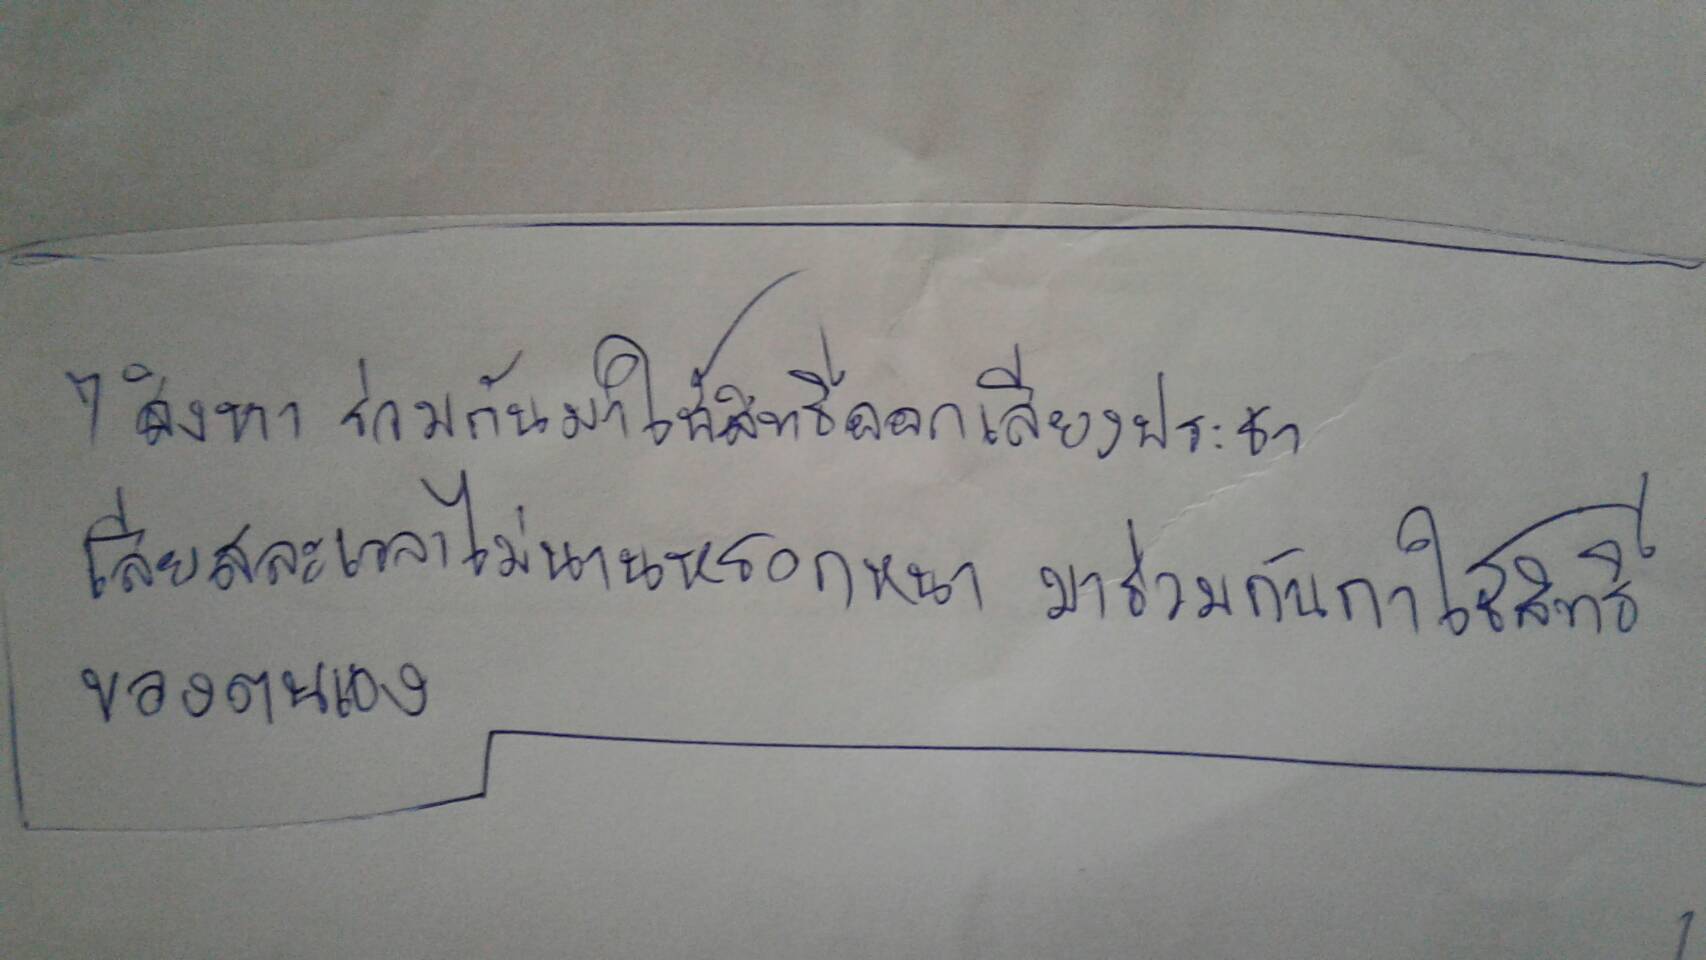 7 สิงหา ร่วมกันมาใช้สิทธิ์ออกเสียงประชา
เสียสละเวลาไม่นานหรอกหนา มาร่วมกันกาใช้สิทธิ์
ของตนเอง